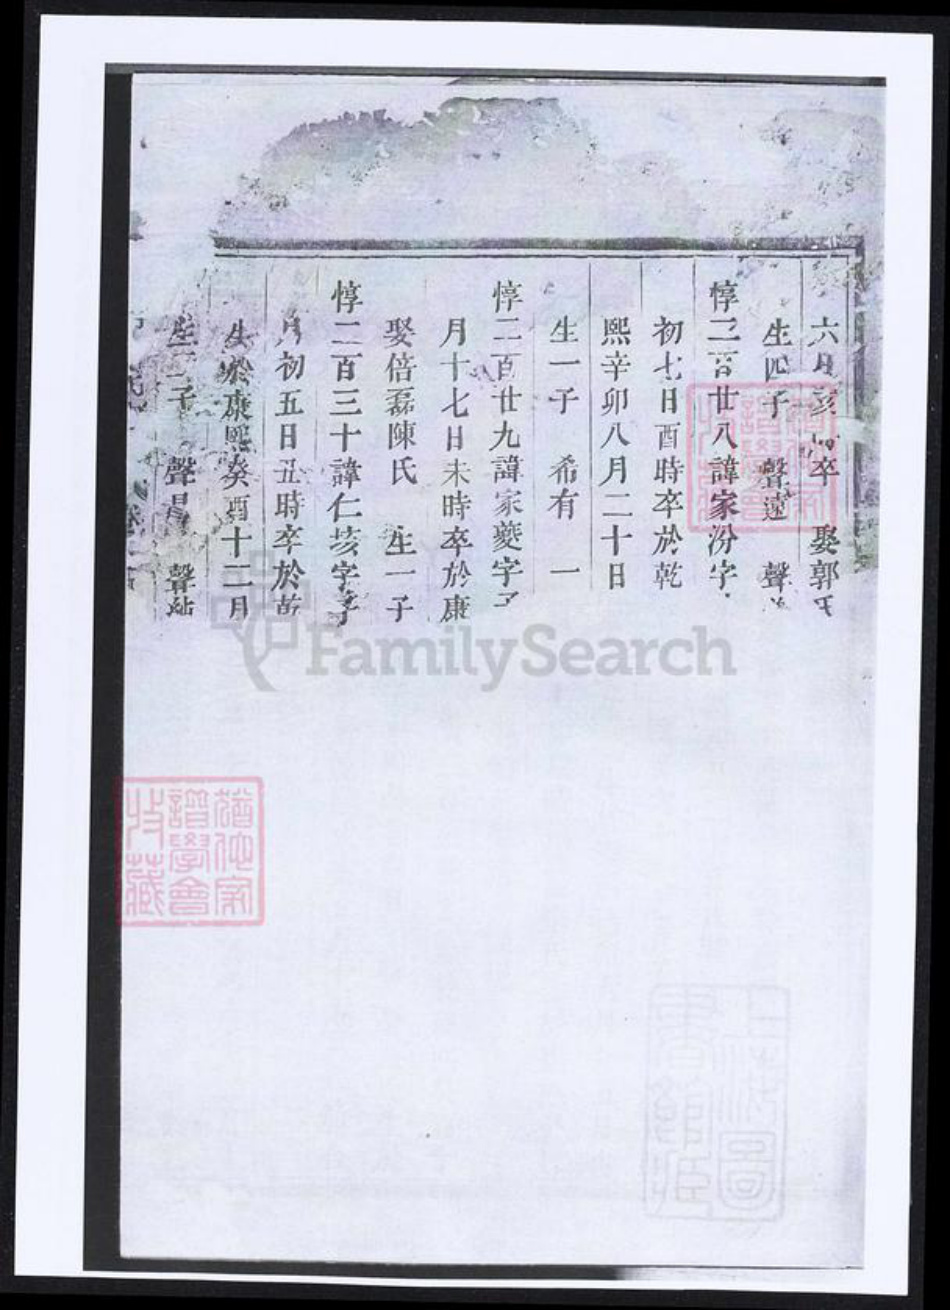 六月 卒 娶郭氏
生四子 聲遠 聲
惇二百廿八諱家汾字
初七日酉時卒於乾
熙辛卯八月二十日
生一子 希有 一
惇二百廿九諱家夔字子
月十七日未時卒於康
娶倍磊陳氏 生一子
惇二百三十諱仁垓字子
月初五日丑時卒於乾
生於康熙癸酉十二月
生二子 聲昌 聲
譜學會
收藏
譜學會
收藏
上海圖
書館藏
FamilySearch